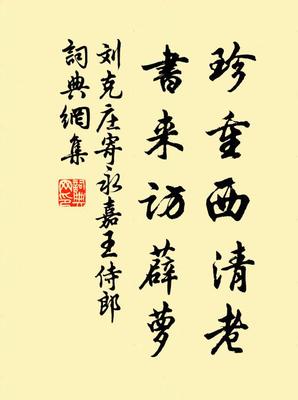 珍重西清老
书来访薜萝
刘克庄寄永嘉王侍郎
词典網集